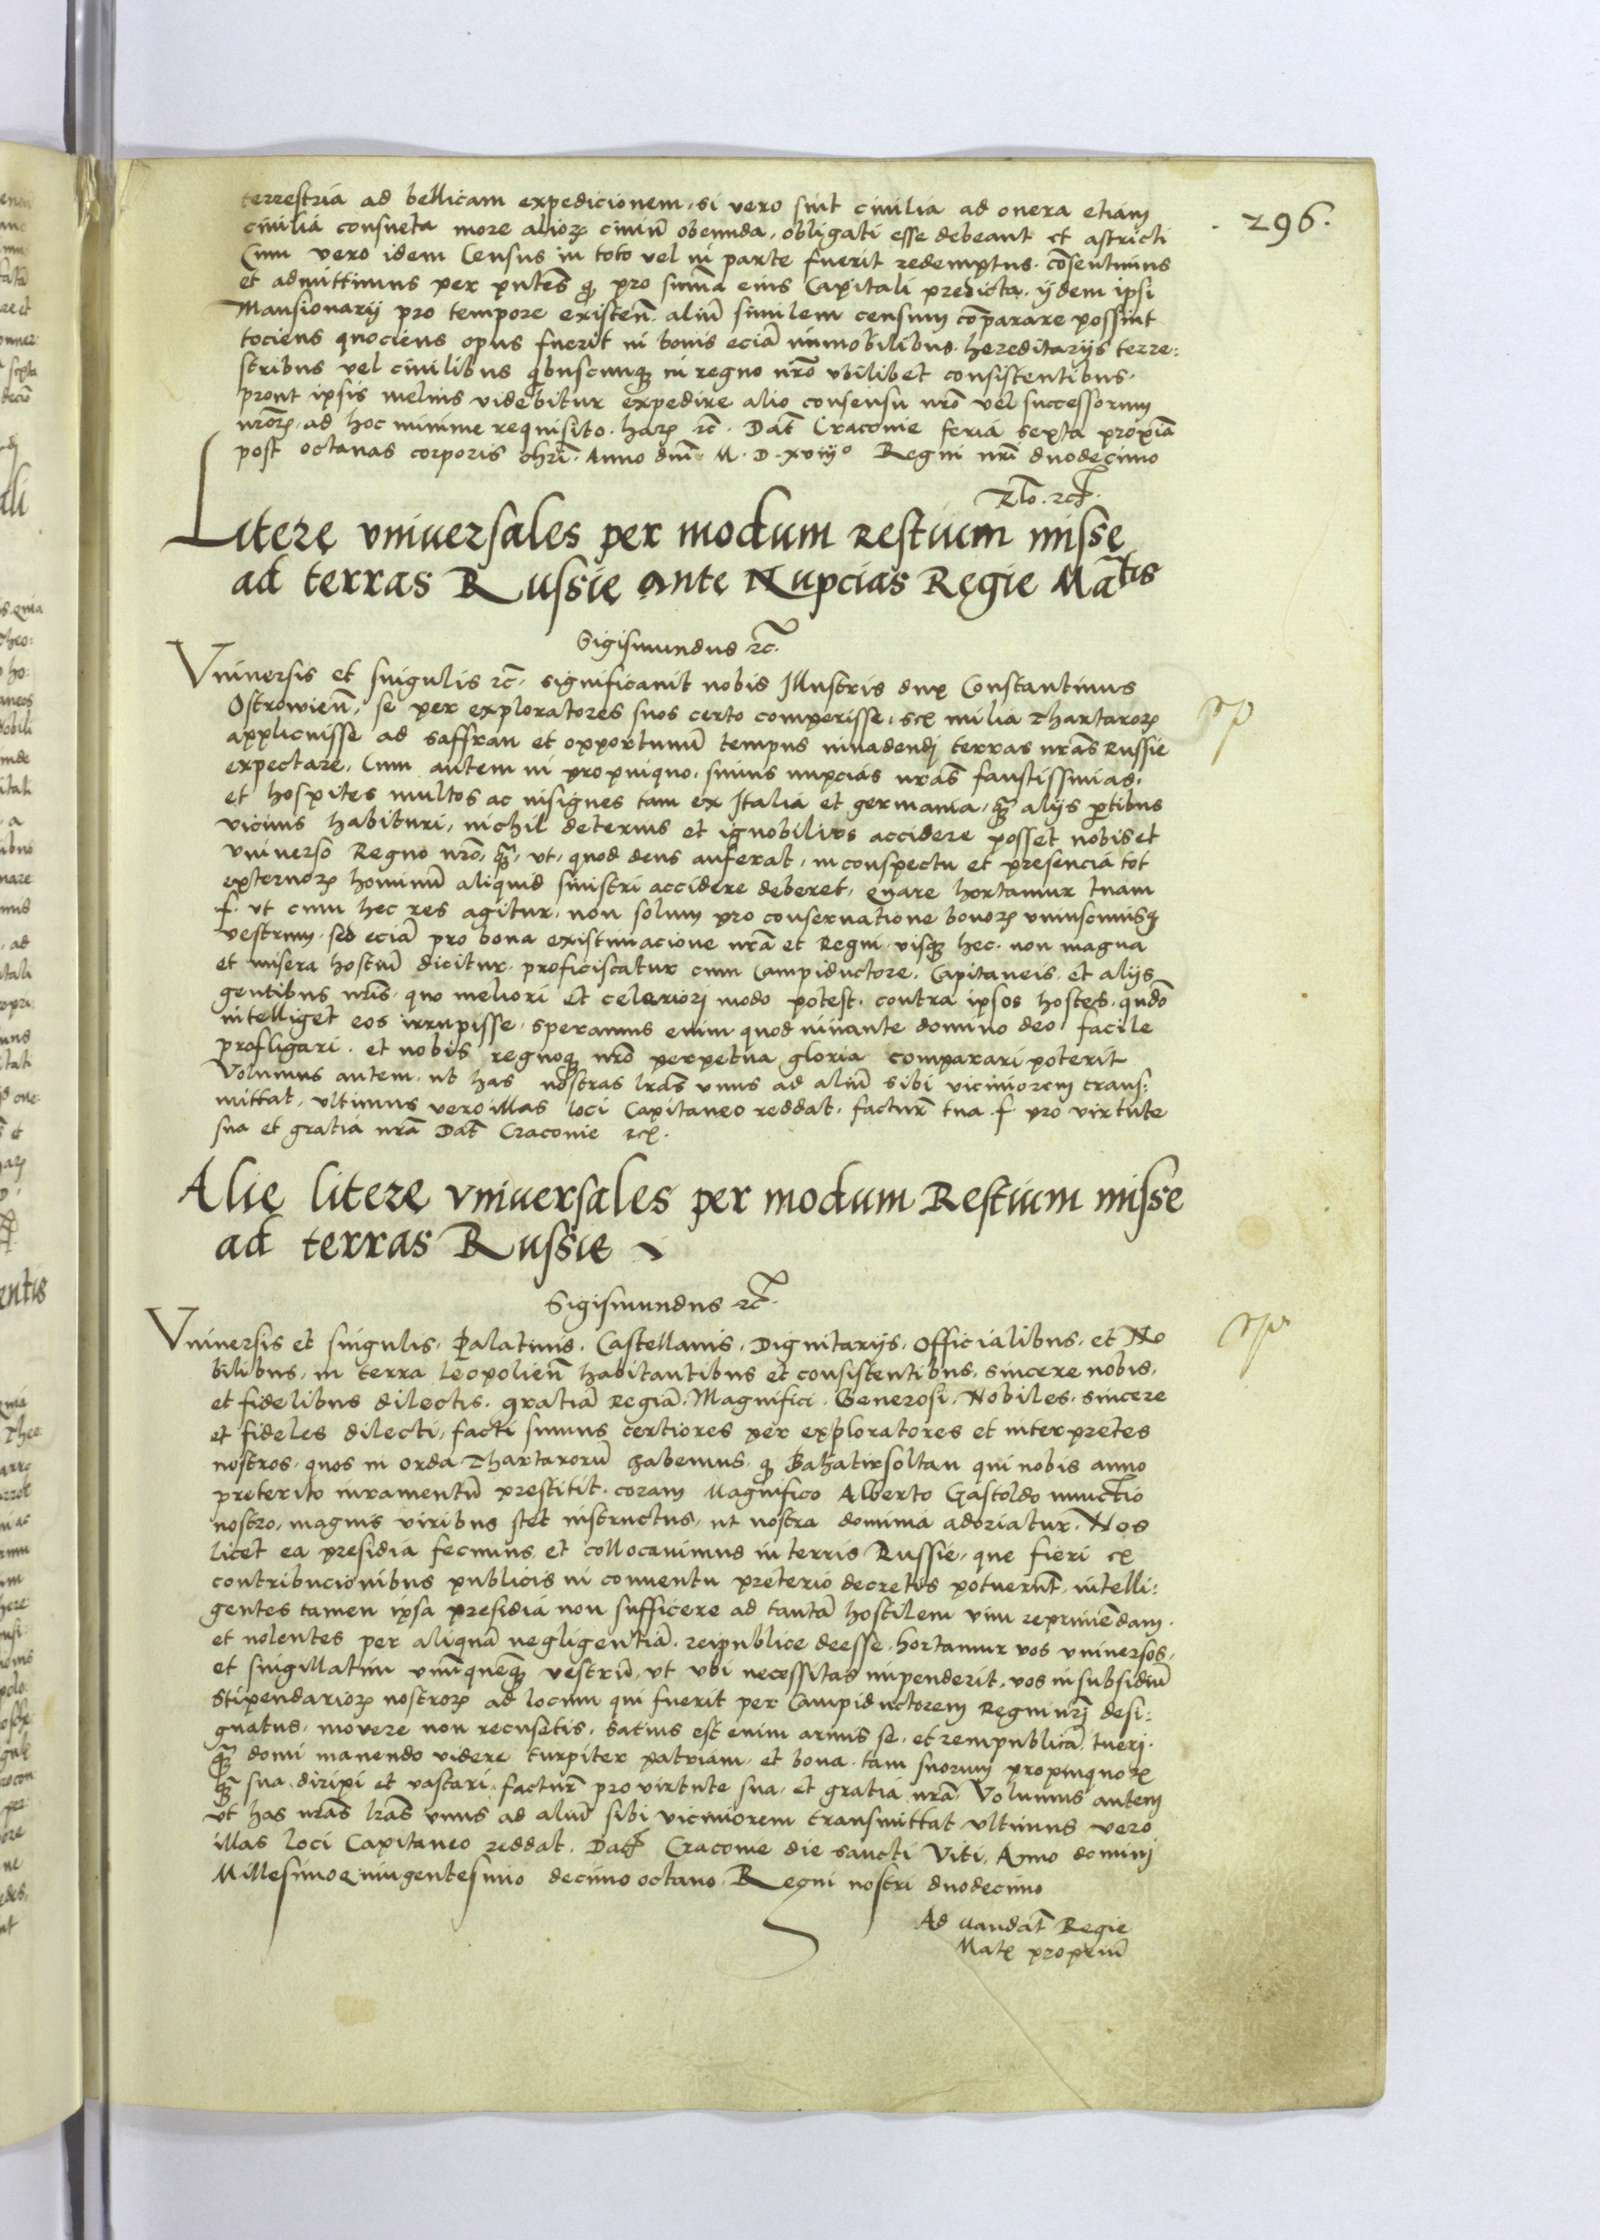 296.
terrestria ad bellicam expedicionem, si vero sint ciuilia ad onera etiam
ciuilia consueta more alioꝝ ciuiū obeunda, obligati esse debeant et astricti
Cum vero idem Census in toto vel in parte fuerit redemptus. cōsentimus
et admittimus per pn̄tes ꝙ pro sum̄a eius Capitali predicta. ijdem ipsi
Mansionarij pro tempore existeñ. aliū similem censum cōparare possint
tociens quociens opus fuerit in bonis eciā immobilibus. hereditarijs terre:
stribus vel ciuilibus qͥbuscunqꝫ in regno nr̄o vbilibet consistentibus.
prout ipsis melius videbitur expedire alio consensu nr̄o vel successorum
nr̄oꝝ. ad hoc minime requisito. haꝝ rc̄. Dat̄ Cracovie feria sexta proxīa
post octauas corporis chri̅. Anno dni̅. M. D. xviijº Regni nr̄i duodecimo
Rl̄o. rcꝭ.
Literę vniuersales per modum Restium misse
ad terras Russię antę Nupcias Regie Ma̅tis
Sigismundus rc̄.
Vniuersis et singulis rc̄. significauit nobis Illustris dux Constantinus
Ostrowieñ, se per exploratores suos certo comperisse, sex milia Thartaroꝝ
applicuisse ad saffran et opportunū tempus inuadendi terras nr̄as Russie
expectare, Cum autem in propinquo. simus nupcias nr̄as faustissimas.
et hospites multos ac insignes tam ex Italia et germania, qꝫ̄ alijs ꝑtibus
vicinis habituri, nichil deterius et ignobilius accidere posset nobis et
vniuerso Regno nr̄o, qꝫ̄, vt, quod deus auferat, in conspectu et presencia tot
externoꝝ hominū aliquid sinistri accidere deberet, Quare hortamur tuam
f. vt cum hec res agitur, non solum pro conseruatione bonoꝝ vniuscuiusqꝫ
vestrum. sed eciā pro bona existimacione nr̄a et Regni. visqꝫ hec. non magna
et misera hostiū dicitur. proficiscatur cum Campiductore. Capitaneis. et alijs
gentibus nr̄is. quo meliori et celeriori modo potest. contra ipsos hostes. qn̄do
intelliget eos irrupisse. speramus enim quod iuuante domino deo facile
profligari. et nobis regnoqꝫ nr̄o perpetua gloria comparari poterit
Volumus autem. ut has nostras lr̄as vnus ad aliū sibi viciniorem trans:
mittat, vltimus vero illas loci Capitaneo reddat. facturꝭ tua f. pro virtute
sua et gratia nr̄a Dat̄ Cracovie rcꝭ.
Alię literę vniuersales per modum Restium misse
ad terras Russię
Sigismundus rc̄.
Vniuersis et singulis. Palatinis. Castellanis. Dignitarijs. Officialibus. et No
bilibus. in terra Leopolieñ habitantibus et consistentibus. sincere nobis.
et fidelibus dilectis. gratiā Regiā. Magnifici. Generosi. Nobiles. sincere
et fideles dilecti, facti sumus certiores per exploratores et interpretes
nostros. quos in orda Thartarorū habemus. ꝙ Bahatirsoltan qui nobis anno
preterito iuramentū prestitit. coram Magnifico Alberto Gastoldo nunctio
nostro, magnis viribus stet instructus, ut nostra dominia adoriatur. Nos
licet ea presidia fecimus et collocauimus in terris Russie, que fieri ex
contribucionibus publicis in conuentu preterio decretis potuerūt, intelli:
gentes tamen ipsa presidia non sufficere ad tantā hostilem vim reprimēdam.
et nolentes per aliquā negligentiā. reipublice deesse. hortamur vos vniuersos,
et singillatim vnūquēqꝫ vestrū, vt vbi necessitas impenderit, vos in subsidiū
stipendarioꝝ nostroꝝ ad locum qui fuerit per Campiductorem Regni nr̄i desi:
gnatus, movere non recusetis, satius est enim armis se. et rempublicā tueri.
qꝫ̄ domi manendo videre turpiter patriam. et bona. tam suorum propinquoꝝ
qꝫ̄ sua diripi et vastari, facturꝭ pro virtute sua, et gratia nr̄a. Volumus autem
vt has nr̄as lr̄as vnus ad aliū sibi viciniorem transmittat vltimus vero
illas loci Capitaneo reddat. Datꝭ Cracovie die sancti Viti, Anno domini
Millesimo Quingentesimo decimo octauo. Regni nostri duodecimo
Ad mandat̄ Regie
Matꝭ propriū